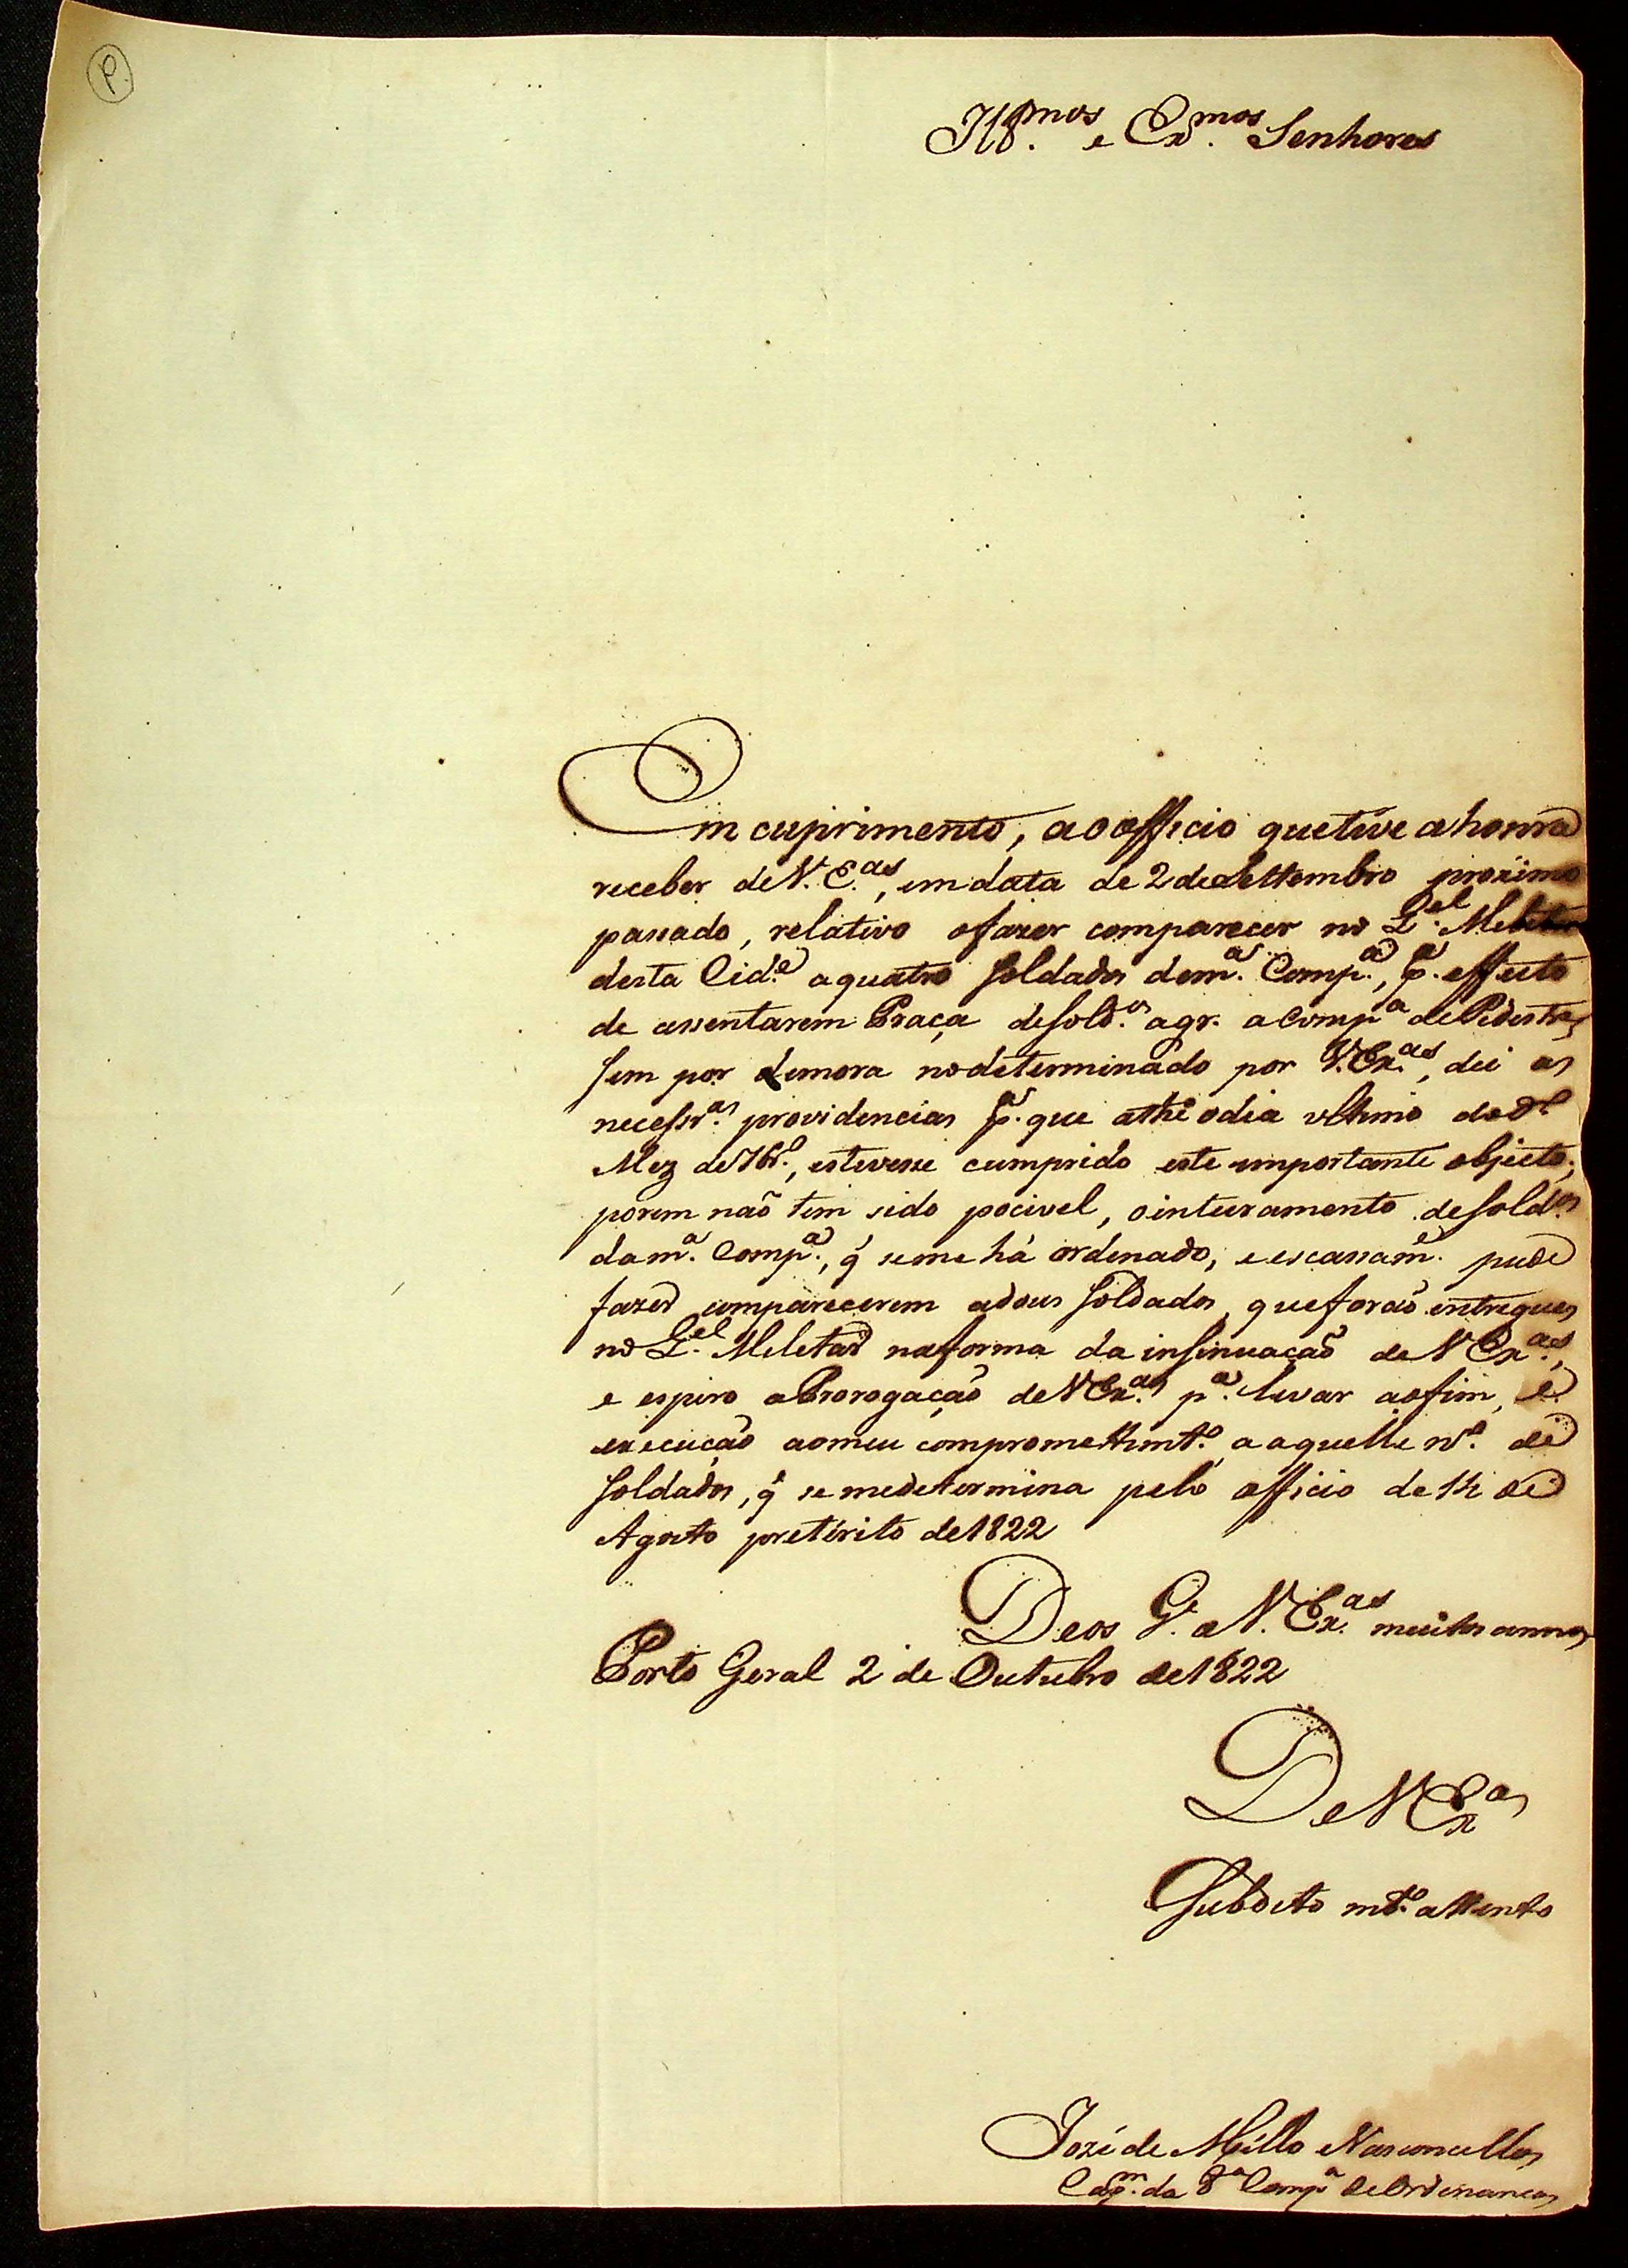 P.
Ill.mos e Ex.mos Senhores
Em cuprimento, ao officio que tive a honra
receber de V. E.as, em data de 2 de Settembro proximo
passado, relativo o fazer comparecer no Q.el Meletar
desta Cid.e a quatro Soldados de m.a Comp.a, p.a effeito
de assentarem Praça de Sold.os a gr. a Comp.a de Pedestres
sem por demora no determinado por V. Ex.as, dei as
necessr.as providencias p.a que athe o dia ultimo do d.o
Mez de 7br.o, estivesse cumprido este importante objecto;
porem naõ tem sido pocivel, o inteiramento de Sold.os
da m.a Comp.a, q̃ se me há ordenado, e escassam.e pude
fazer comparecerem a dous Soldados, que foraõ entregues
no Q.el Meletar na forma da insinuaçaõ de V Ex.as,
e espero a Prorogaçaõ de V Ex.as p.a levar ao fim, e
execuçaõ ao meu compromettimt.o a aquelle n.o de
Soldados, q̃ se me determina pelo officio de 14 de
Agosto pretérito de 1822
Deos G.e a V. Ex.as muitos annos
Porto Geral 2 de Outubro de 1822
De V Ex.as
Subdito mt.o attento
Jozé de Mello Vasconcellos
Cap.m da 8.a Comp.a de Ordenanças